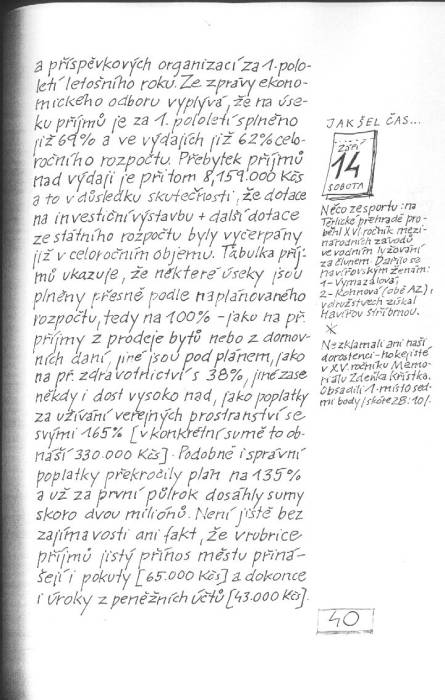 a příspěvkových organizací za 1. polo-
letí letošního roku. Ze zprávy ekono-
mického odboru vyplývá, že na úse-
ku příjmů je za 1. pololetí splněno
již 69% a ve výdajích již 62% celo-
ročního rozpočtu. Přebytek příjmů
nad výdaji je přitom 8,159.000 Kčs
a to v důsledku skutečnosti, že dotace
na investiční výstavbu + další dotace
ze státního rozpočtu byly vyčerpány
již v celoročním objemu. Tabulka příj-
mů ukazuje, že některé úseky jsou
plněny přesně podle naplánovaného
rozpočtu, tedy na 100% - jako na př.
příjmy z prodeje bytů nebo z domov-
ních daní, jiné jsou pod plánem, jako
na př. zdravotnictví s 38%, jiné zase
někdy i dost vysoko nad, jako poplatky
za užívání veřejných prostranství se
svými 165% [v konkrétní sumě to ob-
náší 330.000 Kčs]. Podobně i správní
poplatky překročily plán na 135%
a už za první půlrok dosáhly sumy
skoro dvou miliónů. Není jistě bez
zajímavosti ani fakt, že v rubrice
příjmů jistý přínos městu přiná-
šejí i pokuty [65.000 Kčs] a dokonce
i úroky z peněžních účtů [43.000 Kčs].
JAK ŠEL ČAS...
ZÁŘÍ
14
SOBOTA
Něco ze sportu: na
Těrlické přehradě pro-
běhl XVI. ročník mezi-
národních závodů
ve vodním lyžování
za člunem. Dařilo se
havířovským ženám:
1- Vymazalová,
2- Kohnová (obě AZ),
v družstvech získal
Havířov stříbrnou.
Nezklamali ani naší
dorostenci-hokejisté
v XV. ročníku Memo-
riálu Zdeňka Křístka.
Obsadili 1. místo sed-
mi body /skóre 28:10/.
40